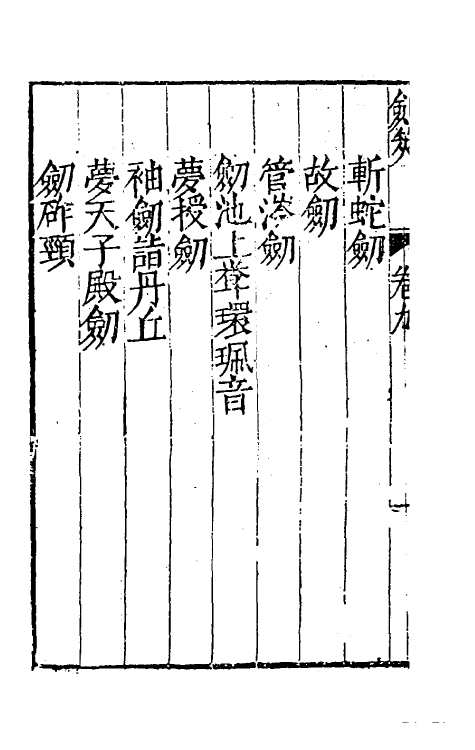 卷九
斬蛇劒
故劒
管涔劒
劒池上聲環珮音
夢授劒
袖劒詣丹丘
夢天子殿劒
劒砟頸